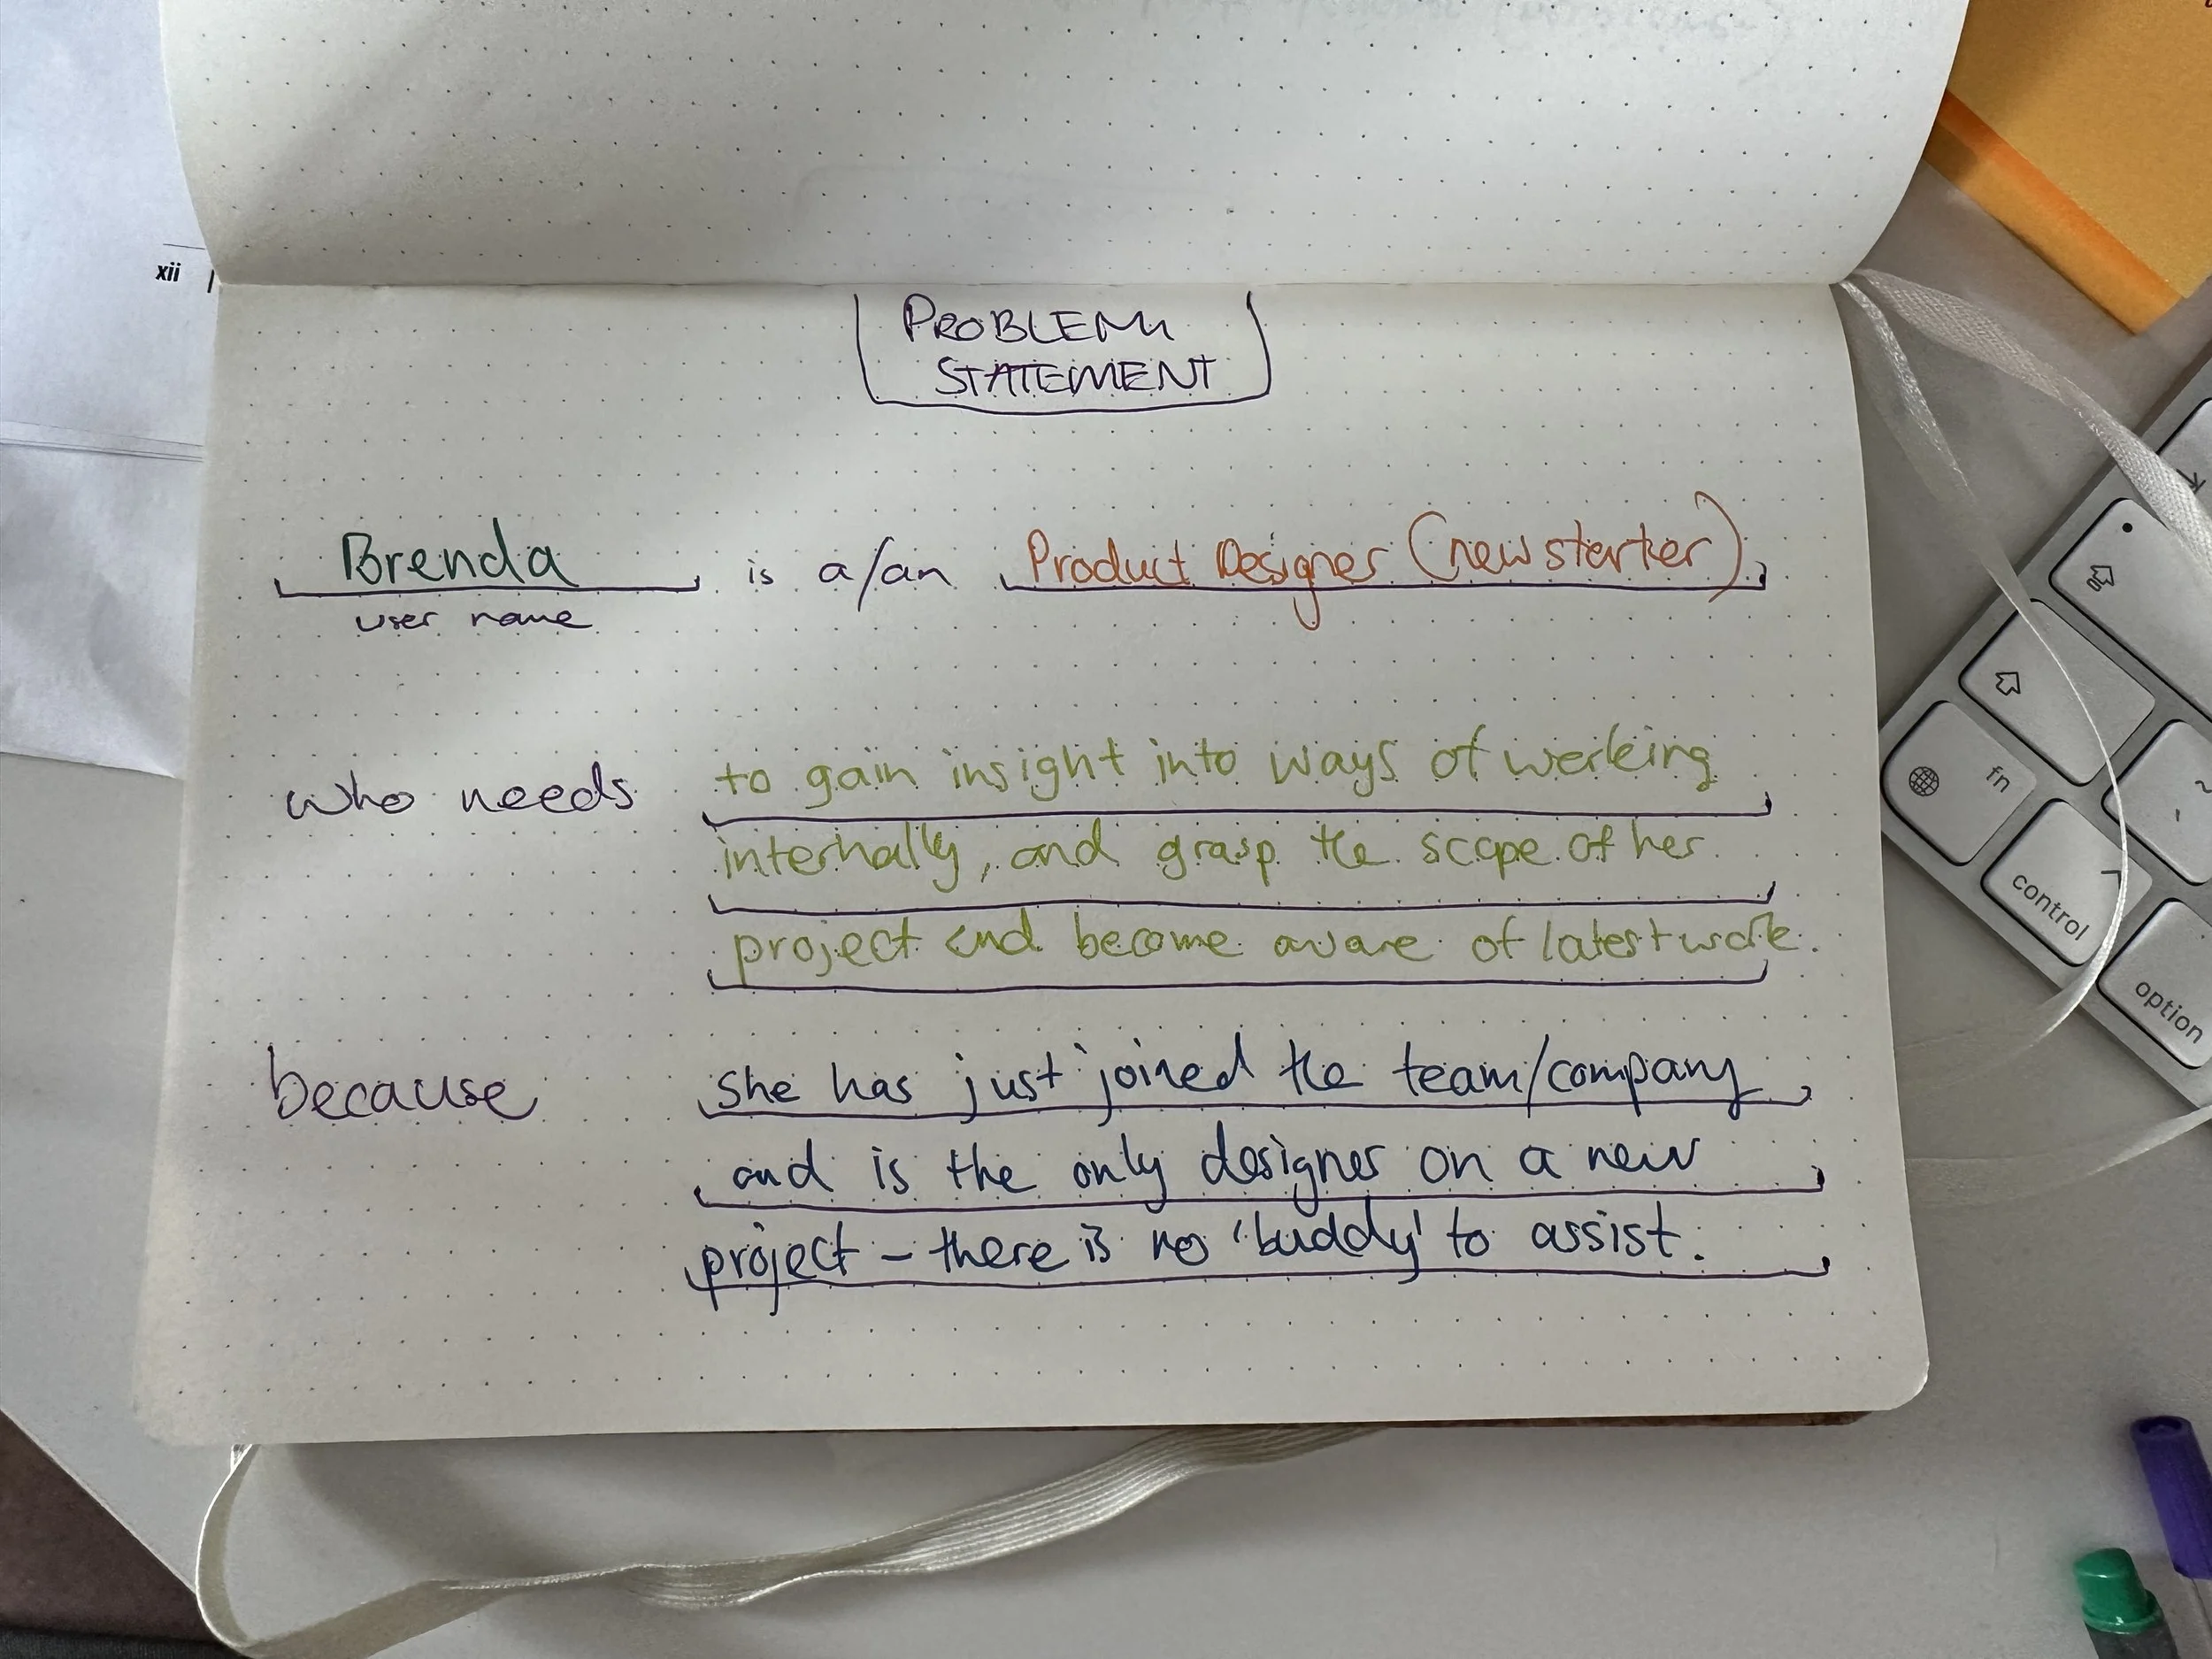 xii
PROBLEM
STATEMENT
Brenda is a/an Product Designer (new starter)
user name
who needs to gain insight into ways of working
internally, and grasp the scope of her
project and become aware of latest work.
because she has just joined the team/company
and is the only designer on a new
project – there is no 'buddy' to assist.
fn
control
option